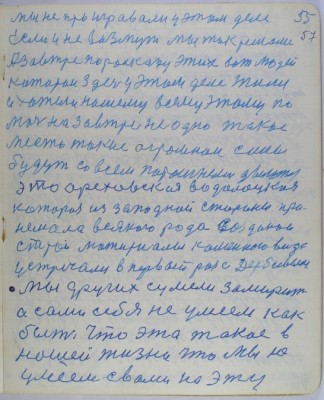 мы не проигравали у этом деле 55
Если не возмут мы так решали 57
А завтре пораскажу этих вот людей
которои здесь у этом деле жили
и хотели нашему всему этому по
моч на завтре не одно такое
место такие огромнои силы
будут совсем
это ореховская водолоцкая
которая из западной стороны при
немала всякого рода созданои
строй материалами каменного вида
устречали в первый раз с Дербы
мы других сумели замирить
а сами себя не умеем как
быть. Что эта такое в
нашей жизни что мы ю
умеем своми на эту